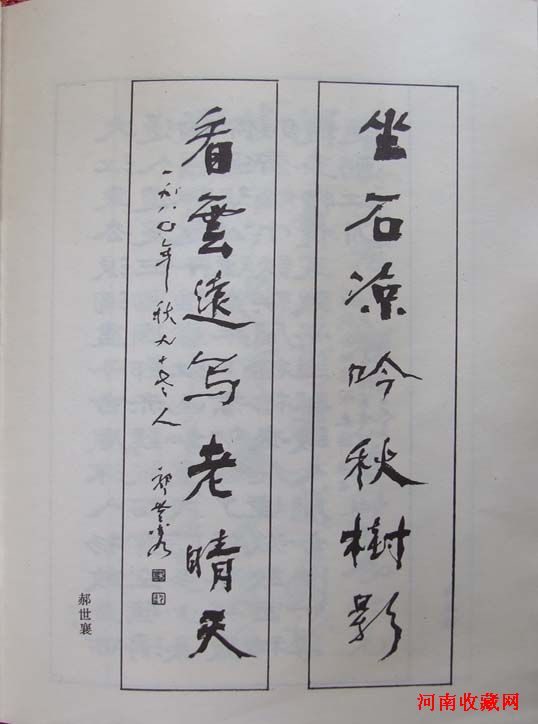 坐石凉吟秋樹影
看雲遠写老晴天
一九八〇年秋九十老人
郝世襄
郝世襄
河南收藏网